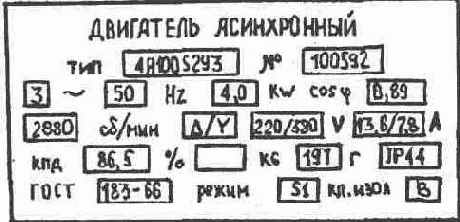 ДВИГАТЕЛЬ АСИНХРОННЫЙ
тип 4А100S2У3 № 100592
3 ~ 50 Hz 4,0 Kw cosφ 0,89
2880 об/мин Δ/Y 220/380 V 13.6/7.8 A
кпд 86,5 % кг 197 г IP44
ГОСТ 183-66 режим S1 кл.изол В